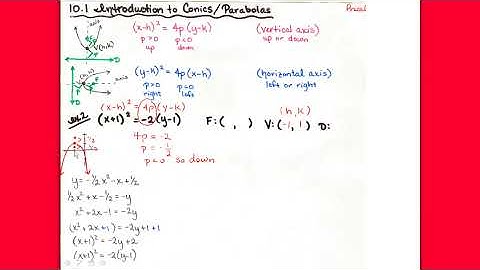 10.1 Introduction to Conics/Parabolas
(x-h)² = 4p(y-k) (vertical axis)
p>0 p<0 up or down
up down
axis
V(h,k)
D
(y-k)² = 4p(x-h) (horizontal axis)
p>0 p<0 left or right
right left
V(h,k)
axis
D
(x-h)² = 4p(y-k) (h,k)
ex.2 (x+1)² = -2(y-1) F:( , ) V:(-1, 1) D:
4p = -2
p = -1/2
p<0 so down
y = -1/2x² - x + 1/2
1/2x² + x - 1/2 = -y
x² + 2x - 1 = -2y
(x² + 2x + 1) = -2y + 1 + 1
(x+1)² = -2y + 2
(x+1)² = -2(y-1)